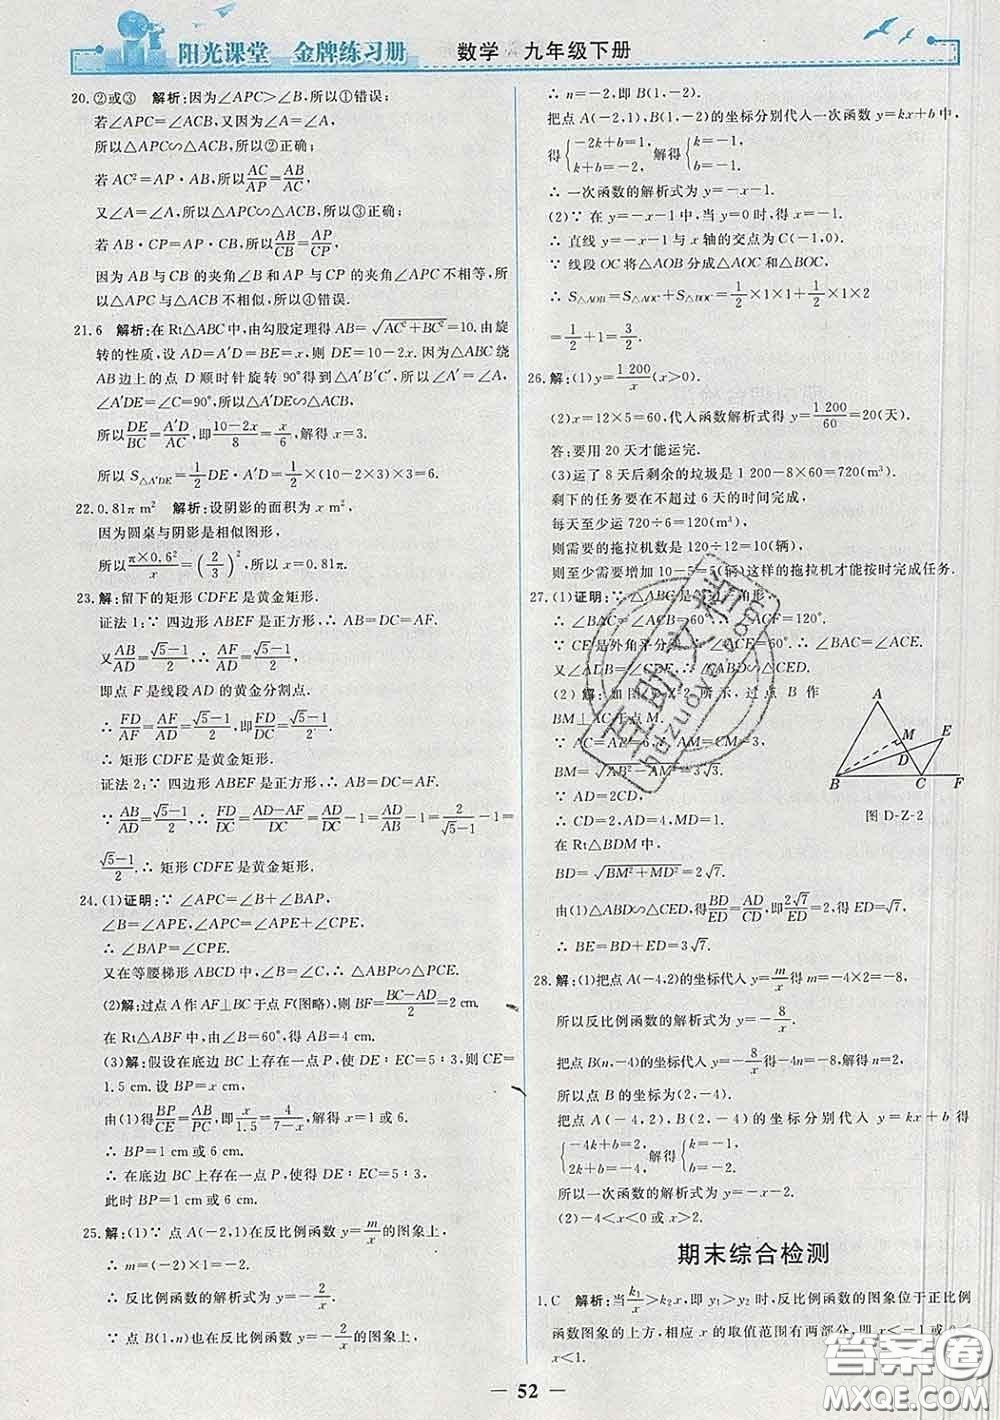 阳光课堂 金牌练习册 数学·九年级下册
20.②或③ 解析:因为∠APC>∠B,所以①错误;
若∠APC=∠ACB,又因为∠A=∠A,
所以△APC∽△ACB,所以②正确;
若 AC²=AP·AB,所以AC/AP=AB/AC,
又∠A=∠A,所以△APC∽△ACB,所以③正确;
若 AB·CP=AP·CB,所以AB/CB=AP/CP,
因为 AB 与 CB 的夹角∠B和 AP 与 CP 的夹角∠APC 不相等,所
以△APC与△ACB不相似,所以④错误.
21.6 解析:在 Rt△ABC中,由勾股定理得 AB=√(AC²+BC²)=10,由旋
转的性质,设 AD=A′D=BE=x,则 DE=10-2x.因为△ABC 绕
AB边上的点 D 顺时针旋转 90°得到△A′B′C′,所以∠A′=∠A,
∠A′DE=∠C=90°,所以△A′DE∽△ACB,
所以DE/BC=A′D/AC,即(10-2x)/8=x/6,解得 x=3.
所以 S△A′DE=1/2DE·A′D=1/2×(10-2×3)×3=6.
22.0.81π m² 解析:设阴影的面积为 x m²,
因为圆桌与阴影是相似图形,
所以π×0.6²/x=(2/3)²,所以 x=0.81π.
23.解:留下的矩形 CDFE 是黄金矩形.
证法 1:∵ 四边形 ABEF 是正方形,∴ AB=AF.
又AB/AD=(√5-1)/2,∴ AF/AD=(√5-1)/2,
即点 F 是线段 AD 的黄金分割点.
∴ FD/AF=AF/AD=(√5-1)/2,∴ FD/DC=(√5-1)/2.
∴ 矩形 CDFE 是黄金矩形.
证法 2:∵ 四边形 ABEF 是正方形,∴ AB=AF.
∵ AB/AD=(√5-1)/2,∴ FD/DC=(AD-AF)/DC=AD/DC-AF/DC=AD/AB-1=2/(√5-1)-1=
(√5-1)/2.∴ 矩形 CDFE 是黄金矩形.
24.(1)证明:∵ ∠APC=∠B+∠BAP,
∠B=∠APE,∠APC=∠APE+∠CPE,
∴ ∠BAP=∠CPE.
又在等腰梯形 ABCD 中,∠B=∠C,∴ △ABP∽△PCE.
(2)解:过点 A 作 AF⊥BC 于点 F(图略),则 BF=(BC-AD)/2=2 cm,
在 Rt△ABF 中,由∠B=60°,得 AB=4 cm.
(3)解:假设在底边 BC 上存在一点 P,使 DE∶EC=5∶3,则 CE=
1.5 cm.设 BP=x cm,
由(1)得BP/CE=AB/PC,即x/1.5=4/(7-x),解得 x=1或 6,
∴ BP=1 cm或 6 cm.
∴ 在底边 BC 上存在一点 P,使得 DE∶EC=5∶3,
此时 BP=1 cm或 6 cm.
25.解:(1)∵ 点 A(-2,1)在反比例函数 y=m/x的图象上,
∴ m=(-2)×1=-2.
∴ 反比例函数的解析式为 y=-2/x.
∵ 点 B(1,n)也在反比例函数 y=-2/x的图象上,
∴ n=-2,即 B(1,-2).
把点 A(-2,1),B(1,-2)的坐标分别代入一次函数 y=kx+b 中,
得{-2k+b=1, k+b=-2, 解得{k=-1, b=-1.
∴ 一次函数的解析式为 y=-x-1.
(2)∵ 在 y=-x-1中,当 y=0时,得 x=-1.
∴ 直线 y=-x-1与 x 轴的交点为 C(-1,0).
∵ 线段 OC 将△AOB 分成△AOC 和△BOC,
∴ S△AOB=S△AOC+S△BOC=1/2×1×1+1/2×1×2
=1/2+1=3/2.
26.解:(1)y=1 200/x(x>0).
(2)x=12×5=60,代入函数解析式得 y=1 200/60=20(天).
答:要用 20 天才能运完.
(3)运了 8 天后剩余的垃圾是 1 200-8×60=720(m³).
剩下的任务要在不超过 6 天的时间完成,
每天至少运 720÷6=120(m³),
则需要的拖拉机数是 120÷12=10(辆),
则至少需要增加 10-5=5(辆)这样的拖拉机才能按时完成任务.
27.(1)证明:∵ △ABC 是等边三角形,
∴ ∠BAC=∠ACB=60°,∴ ∠ACF=120°.
∵ CE是外角平分线,∴ ∠ACE=60°,∴ ∠BAC=∠ACE.
又∠ADB=∠CDE,∴ △ABD∽△CED.
(2)解:如图D-Z-2所示,过点 B 作
BM⊥AC于点 M.
∵ AC=AB=6,∴ AM=CM=3,
BM=√(AB²-AM²)=3√3.
∵ AD=2CD,
∴ CD=2,AD=4,MD=1.
在 Rt△BDM 中,
BD=√(BM²+MD²)=2√7.
由(1)△ABD∽△CED,得BD/ED=AD/CD,即2√7/ED=4/2,得 ED=√7,
∴ BE=BD+ED=3√7.
A
M
E
D
B
C
F
图 D-Z-2
28.解:(1)把点 A(-4,2)的坐标代入 y=m/x得 m=-4×2=-8,
所以反比例函数的解析式为 y=-8/x.
把点 B(n,-4)的坐标代入 y=-8/x得-4n=-8,解得 n=2,
所以点 B 的坐标为(2,-4).
把点 A(-4,2),B(2,-4)的坐标分别代入 y=kx+b 得
{-4k+b=2, 2k+b=-4, 解得{k=-1, b=-2.
所以一次函数的解析式为 y=-x-2.
(2)-4<x<0或 x>2.
期末综合检测
1.C 解析:当k₁/x>k₂x,即 y₁>y₂时,反比例函数的图象位于正比例
函数图象的上方,相应 x 的取值范围有两部分,即
x<1.
52
互助文档
hdzuoye.com
答案圈
MXQE.COM